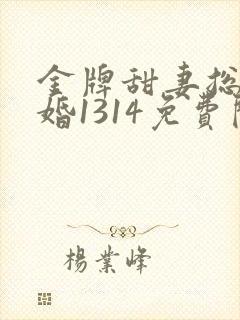 金牌甜妻总
婚1314免費
楊業峰